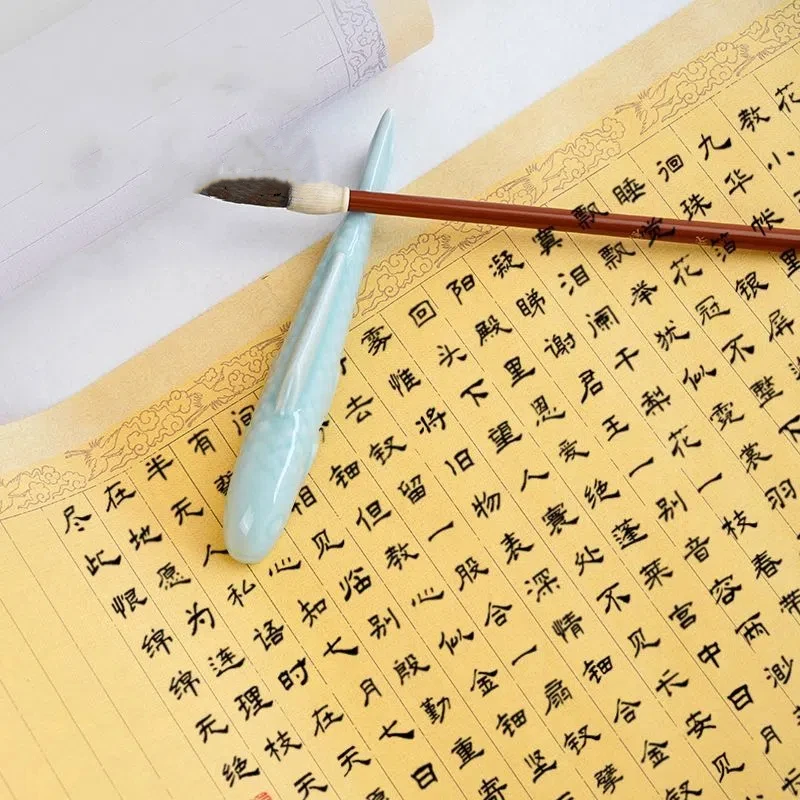 花
教小
九华帐里
徊珠箔银屏
睡觉花冠不整下
飘飘举犹似霓裳羽
寞泪阑干梨花一枝春带
凝睇谢君王一别音容两渺
阳殿里恩爱绝蓬莱宫中日月
回头下望人寰处不见长安
雾惟将旧物表深情钿合金钗
去钗留一股合一扇钗擘
钿但教心似金钿坚
间相见临别殷勤重寄
有心知七月七日
半天人私语时在天
在地愿为连理枝天
尽此恨绵绵无绝